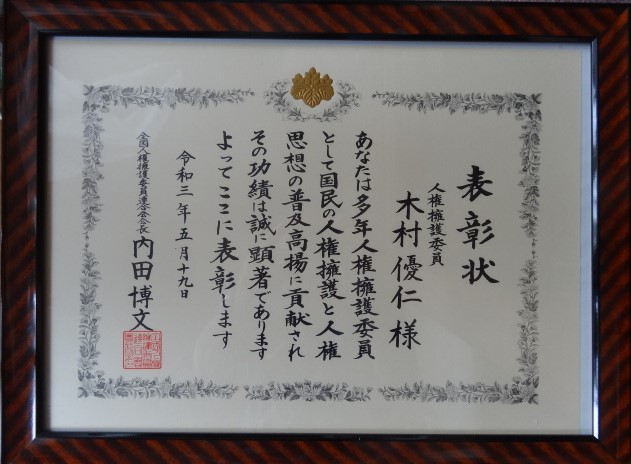 表彰状
人権擁護委員
木村優仁様
あなたは多年人権擁護委員
として国民の人権擁護と人権
思想の普及高揚に貢献され
その功績は誠に顕著であります
よってここに表彰します
令和三年五月十九日
全国人権擁護委員連合会会長
内田博文